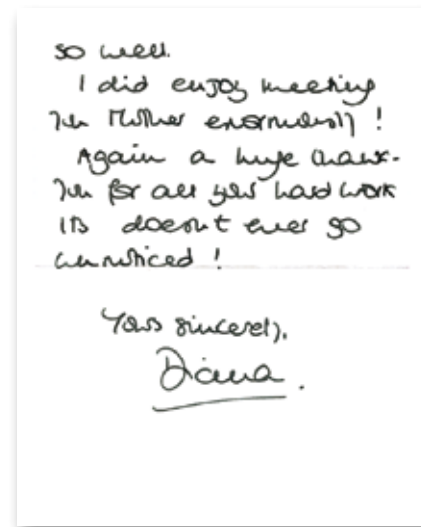 so well.
I did enjoy meeting
your Mother enormously!
Again a huge thank-
you for all your hard work
its doesn't ever go
unnoticed!
Yours sincerely,
Diana.